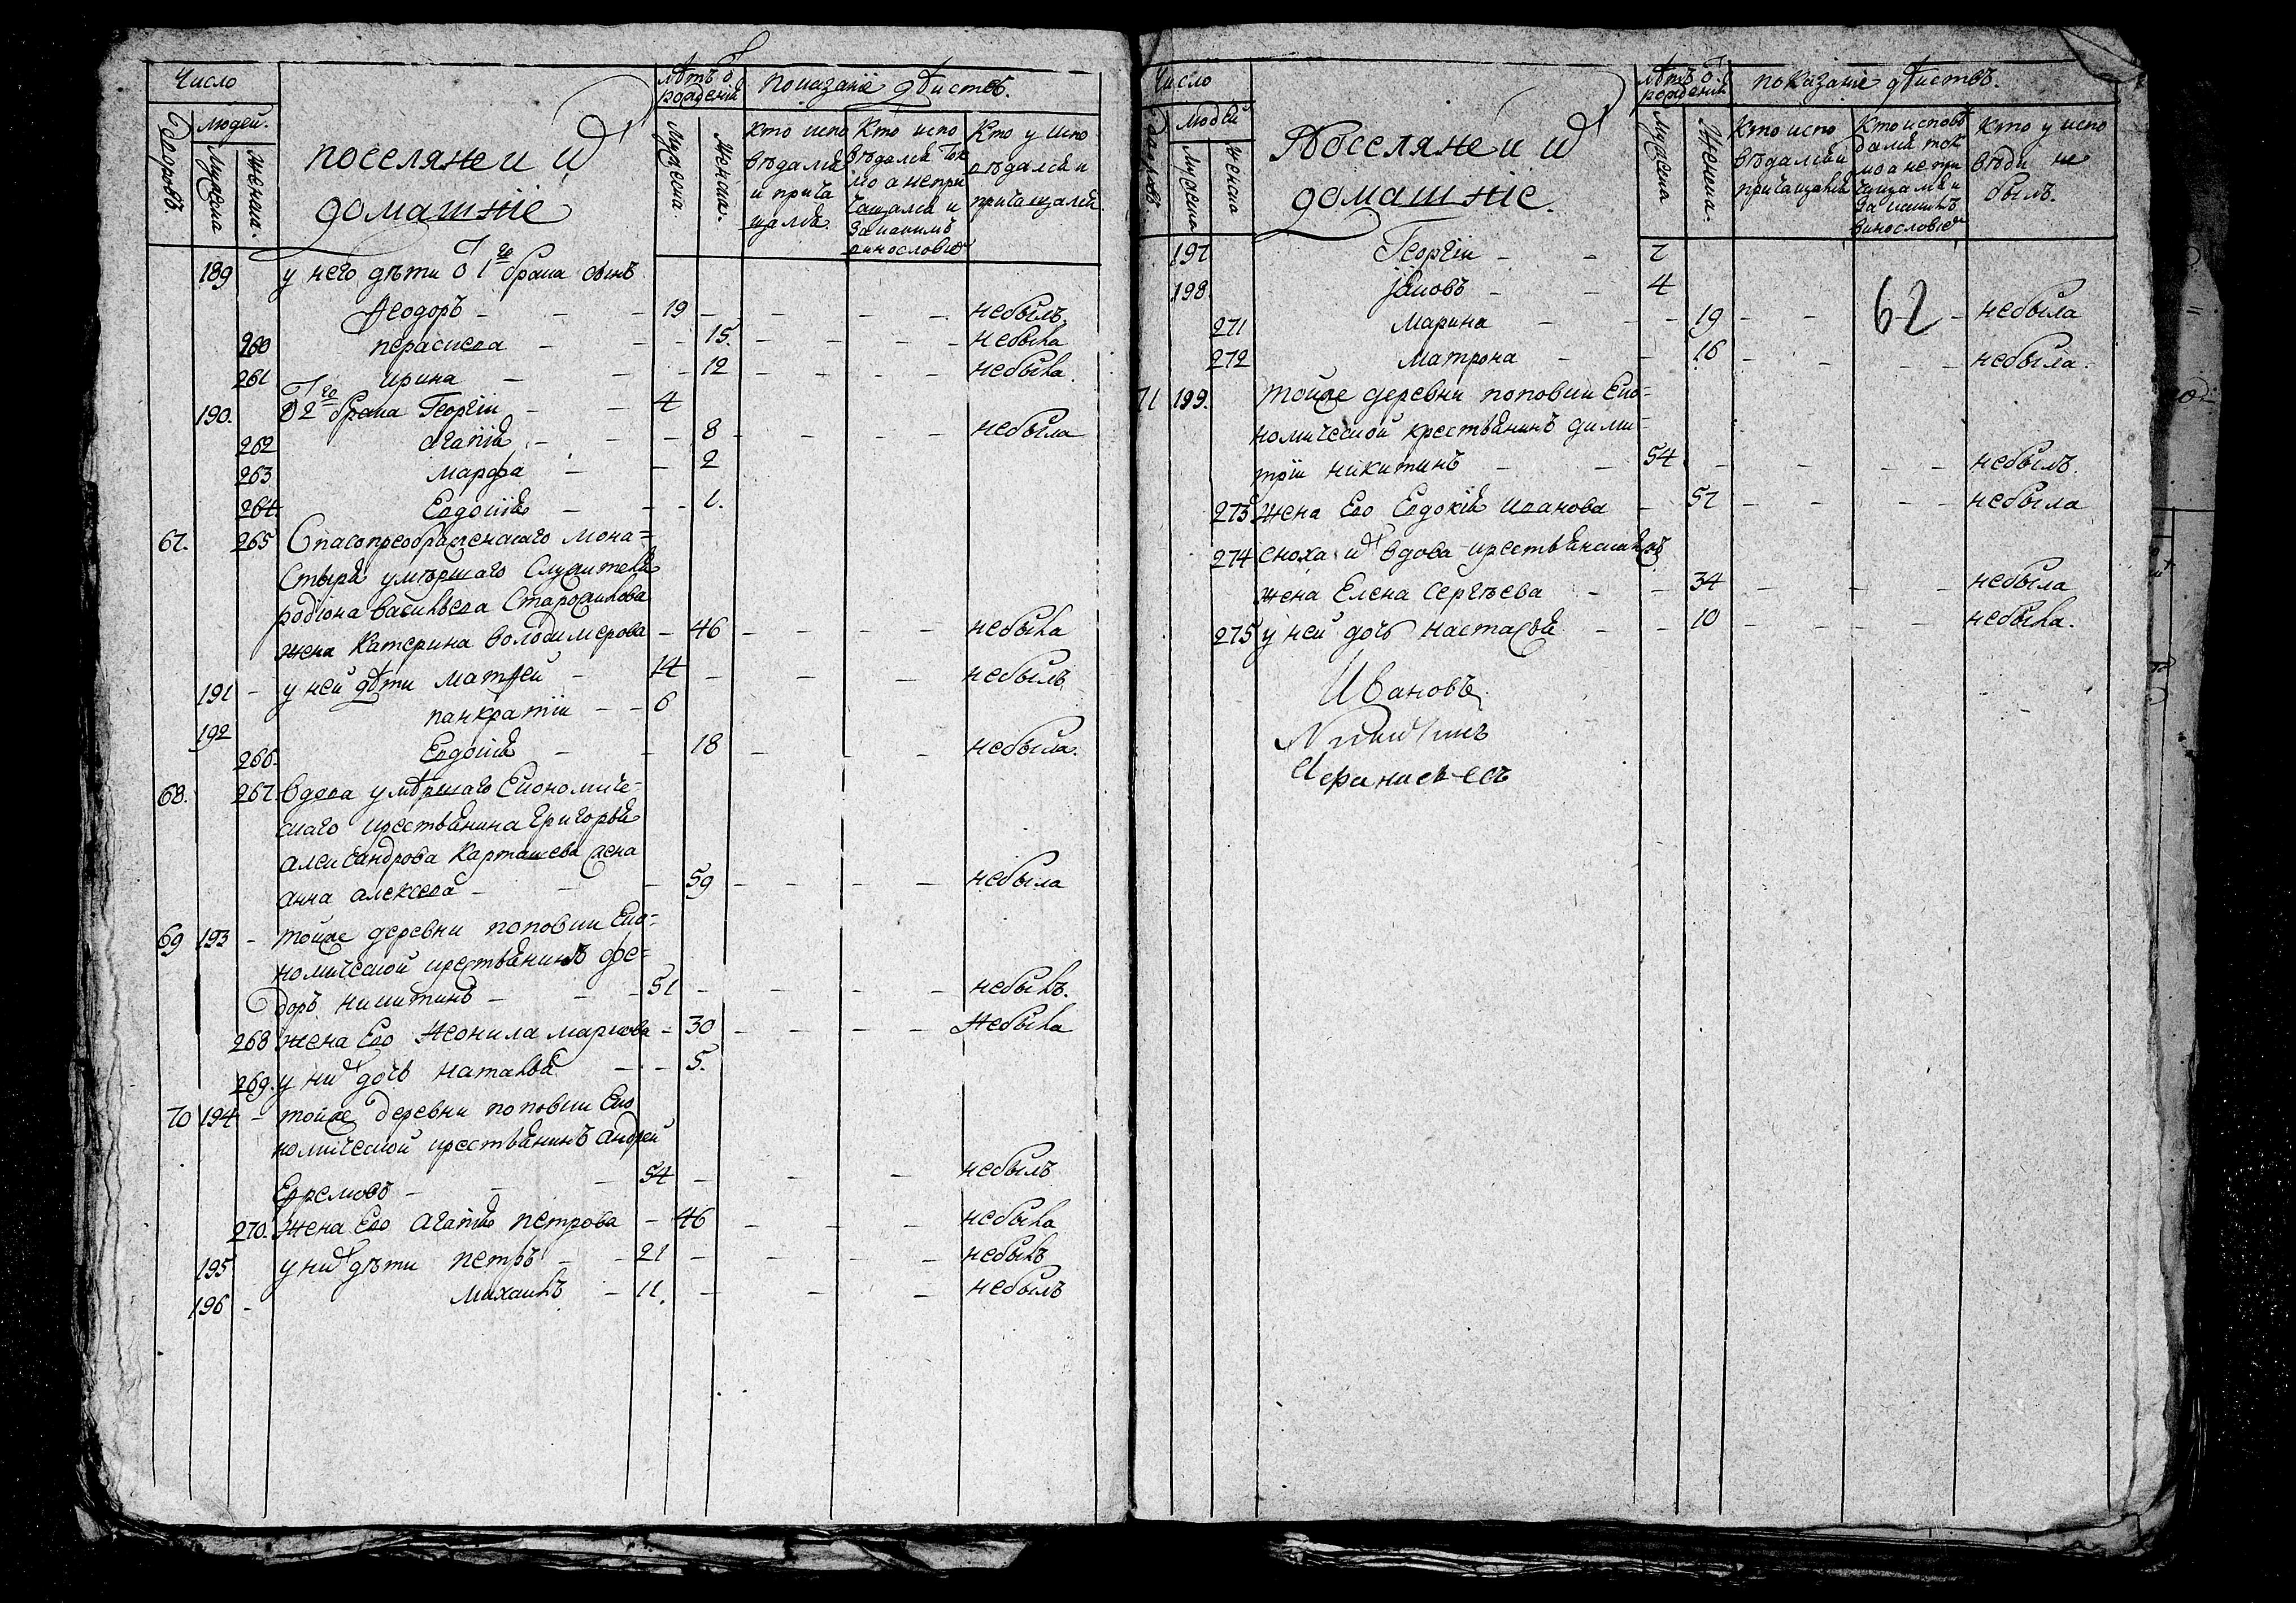 Число
людей.
Дворовъ.
Мужеска
Женска.
поселяне и ихъ
домашніе
лѣтъ от рожденія
Мужеска.
Женска.
показаніе дѣйствъ.
кто испо
вѣдался
и прича
щался.
Кто испо
вѣдался ток
мо а непри
чащался и
за какимъ
винословіемъ
Кто у испо
вѣдался и
причащался.
189 у него дѣти от 1го брака сынъ
Ѳеодоръ - - - 19 - - - - небылъ.
260 параскева - - - 15. - - - - небыла
261 ирина - - - 12 - - - - небыла.
190. от 2го брака Георгіи - - 4
262 агапія - - - 8 - - - - небыла
263 марфа - - 2
264 Евдокія - - - 1.
67. 265 Спасопреображенскаго мона=
стыря умѣршаго служителя
родіона васильева Старожилова
жена катерина володимерова - 46 - - - - небыла
191 - у ней дѣти матѳеи - 14 - - - небылъ
192 панкратіи - - 6
266. Евдокія - - 18 - - - небыла.
68. 267. вдова умѣршаго Економиче=
скаго крестьянина григорья
александрова карташева жена
анна алексеева - - - 59 - - - - небыла
69 193 - тойже деревни поповки Еко=
номическои крестьянинъ фе=
доръ никитинъ - - - 51 - - - - небылъ.
268 жена Ево неонила маркова - 30 - - - - небыла
269. у нихъ дочь наталья - - 5.
70 194 - тойже деревни поповки Еко
номическои крестьянинъ андреи
Ефремовъ - - - 54 - - - небылъ
270. жена Ево агапия петрова - 46 - - - небыла
195 у нихъ дѣти петръ - - 21 - - - небылъ
196 - михаилъ - 11. - - - небылъ
Число
людей
Дворовъ.
Мужеска
Женска
Поселяне и ихъ
домашніе.
лѣтъ от рожденія
Мужеска
Женска.
показаніе дѣйствъ.
Кто испо
вѣдался и
причащался
Кто исповѣ
дался ток
мо а не при
чащался и
за какимъ
винословіемъ
Кто у испо
вѣди не
былъ.
197 Георгіи - - 7
198. Іаковъ - - 4
62
271 Марина - - - 19 - - - небыла
272 Матрона - - 16 - - - - небыла.
71 199. тойже деревни поповки Еко=
номическои крестьянинъ дими=
тріи никитинъ - - 54 - - - - небылъ.
273 жена Ево Евдокія иванова - 57 - - - - небыла
274 сноха ихъ вдова крестьянская
жена Елена Сергѣева - - 34 - - - небыла
275 у неи дочь настасья - - 10 - - - - небыла.
Ивановъ.
Никитинъ